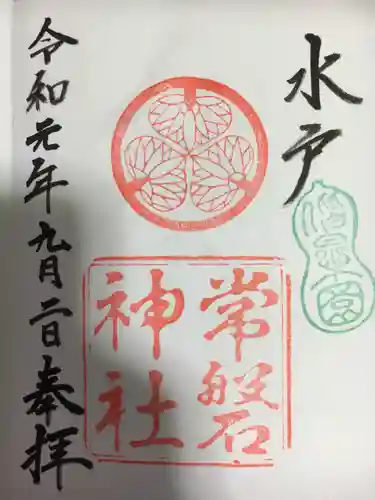 水戸
偕楽園
常磐
神社
令和元年九月二日奉拝